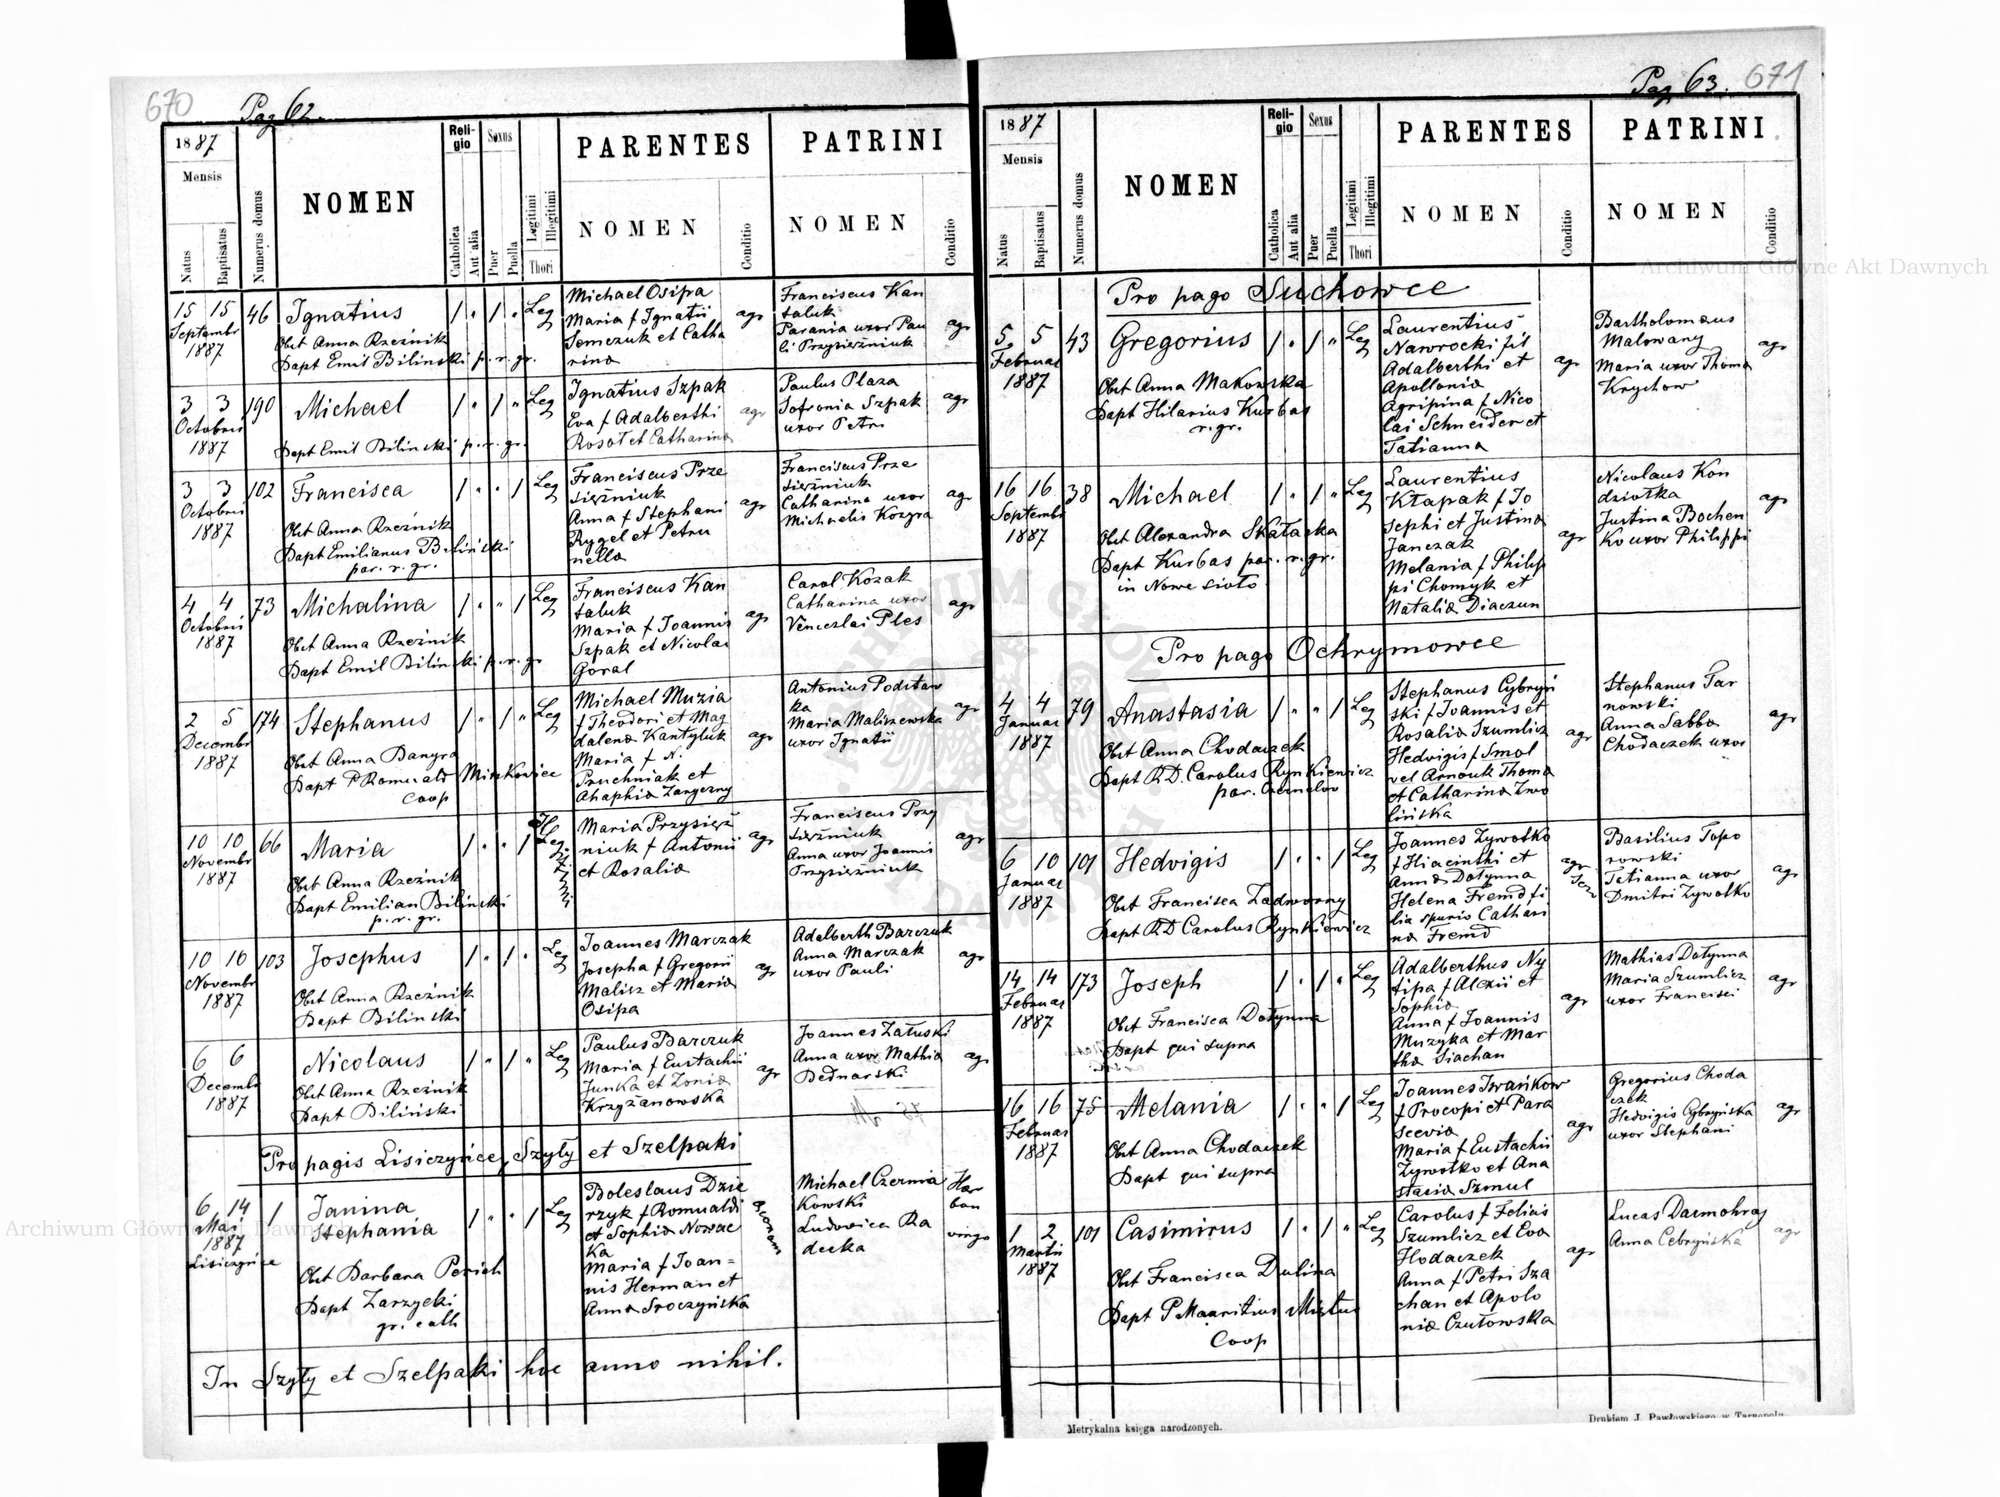 670
Pag 62.
1887
Mensis
Natus
Baptisatus
Numerus domus
NOMEN
Reli-
gio
Catholica
Aut alia
Sexus
Puer
Puella
Legitimi
Illegitimi
Thori
PARENTES
NOMEN
Conditio
PATRINI
NOMEN
Conditio
15 15 46 Ignatius 1 " 1 " Leg
Septembr
1887
Obst Anna Rzeźnik
Bapt Emil Biliński p. r. gr.
Michael Osipa
Maria f Ignatii
Semczuk et Catha
rina
agr
Franciscus Kan
taluk
Parania uxor Pau
li Przysiężniuk
agr
3 3 190 Michael 1 " 1 " Leg
Octobris
1887
Bapt Emil Biliński p. r. gr.
Ignatius Szpak
Eva f Adalberthi
Rosoł et Catharina
agr
Paulus Plaza
Sofronia Szpak
uxor Petri
agr
3 3 102 Francisca 1 " " 1 Leg
Octobris
1887
Obst Anna Rzeźnik
Bapt Emilianus Biliński
par. r. gr.
Franciscus Prze
siężniuk
Anna f Stephani
Rygel et Petru
nella
agr
Franciscus Prze
siężniuk
Catharina uxor
Michaelis Kozyra
agr
4 4 73 Michalina 1 " " 1 Leg
Octobris
1887
Obst Anna Rzeźnik
Bapt Emil Biliński p. r. gr
Franciscus Kan
taluk
Maria f Joannis
Szpak et Nicolai
Goral
agr
Carol Kozak
Catharina uxor
Venceslai Ples
agr
2 5 174 Stephanus 1 " 1 " Leg
Decembr
1887
Obst Anna Banyra
Bapt P Romuald Miszkowice
Coop
Michael Muzia
f Theodori et Mag
dalena Kantyluk
Maria f N.
Pruchniak et
Ahaphia Zaryczny
agr
Antonius Podstaw
ka
Maria Maliszewska
uxor Ignatii
agr
10 10 66 Maria 1 " " 1
Novembr
1887
Obst Anna Rzeźnik
Bapt Emilian Biliński
p. r. gr.
Maria Przysięż
niuk f Antonii
et Rosalia
agr
Franciscus Przy
siężniuk
Anna uxor Joannis
Przysiężniuk
agr
10 10 103 Josephus 1 " 1 " Leg
Novembr
1887
Obst Anna Rzeźnik
Bapt Biliński
Joannes Marczak
Josepha f Gregorii
Malisz et Maria
Osipa
agr
Adalberth Barczuk
Anna Marczak
uxor Pauli
agr
6 6 Nicolaus 1 " 1 " Leg
Decembr
1887
Obst Anna Rzeźnik
Bapt Biliński
Paulus Barczuk
Maria f Eustachii
Junka et Zonia
Krzyżanowska
agr
Joannes Załuski
Anna uxor Mathia
Bednarski
agr
Pro pagis Lisiczyńce, Szyły et Szelpaki
6 14 1 Janina
Stephania 1 " " 1 Leg
Mai
1887
Lisiczyńce
Obst Barbara Perich
Bapt Zarzycki
gr. cath
Boleslaus Dzie
rzyk f Romualdi
et Sophia Nowac
ka
Maria f Joan=
nis Herman et
Anna Sroczyńska
Michael Czernia
kowski
Ludovica Ra
decka
virgo
In Szyły et Szelpaki hoc anno nihil.
Pag 63. 671
1887
Mensis
Natus
Baptisatus
Numerus domus
NOMEN
Reli-
gio
Catholica
Aut alia
Sexus
Puer
Puella
Legitimi
Illegitimi
Thori
PARENTES
NOMEN
Conditio
PATRINI
NOMEN
Conditio
Pro pago Suchowce
5 5 43 Gregorius 1 " 1 " Leg
Februar
1887
Obst Anna Makowska
Bapt Hilarius Kurbas
r. gr.
Laurentius
Nawrocki fil
Adalberthi et
Apollonia
Agripina f Nico
lai Schneider et
Tatianna
agr
Bartholomaus
Malowany
Maria uxor Thoma
Krychow
agr
16 16 38 Michael 1 " 1 " Leg
Septembr
1887
Obst Alexandra Skałaska
Bapt Kurbas par. r. gr.
in Nowe sioło
Laurentius
Kłapak f Jo
sephi et Justina
Janczak
Melania f Philip
pi Chomyk et
Natalia Diaczun
agr
Nicolaus Kon
dziołka
Justina Bochen
ko uxor Philippi
agr
Pro pago Ochrymowce
4 4 79 Anastasia 1 " " 1 Leg
Januar
1887
Obst Anna Chodaczek
Bapt R.D. Carolus Rynkiewicz
par. Czernelow
Stephanus Cybryń
ski f Joannis et
Rosalia Szumlicz
Hedvigis f Smol
vel Arnouk Thoma
et Catharina Zwo
lińska
agr
Stephanus Tar
nowski
Anna Sabba
Chodaczek uxor
agr
6 10 101 Hedvigis 1 " " 1 Leg
Januar
1887
Obst Francisca Zadworny
Bapt RD Carolus Rynkiewicz
Joannes Zywotko
f Hiacinthi et
Anna Dotynna
Helena Fremd fi
lia spuria Cathari
na Fremd
agr
Basilius Topo
rowski
Tetianna uxor
Dmitri Zywotko
agr
14 14 173 Joseph 1 " 1 " Leg
Februar
1887
Obst Francisca Dotynna
Bapt qui supra
Adalberthus Ny
tipa f Alexii et
Sophia
Anna f Joannis
Muzyka et Mar
tha Siachan
agr
Mathias Dotynna
Maria Szumlicz
uxor Francisci
agr
16 16 75 Melania 1 " " 1 Leg
Februar
1887
Obst Anna Chodaczek
Bapt qui supra
Joannes Iwańkow
f Procopi et Para
scevia
Maria f Eustachii
Zywotko et Ana
stasia Szmul
agr
Gregorius Choda
czek
Hedvigis Cybryńska
uxor Stephani
agr
1 2 101 Casimirus 1 " 1 " Leg
Martii
1887
Obst Francisca Dulina
Bapt P Mauritius Mistur
Coop
Carolus f Felicis
Szumlicz et Eva
Hodaczek
Anna f Petri Sza
chan et Apolo
nia Czułowska
agr
Lucas Darmohraj
Anna Cebryńska
agr
Metrykalna księga narodzonych.
Drukiem J. Pawłowskiego w Tarnopolu
Archiwum Główne Akt Dawnych
Archiwum Główne Akt Dawnych
ARCHIWUM GŁÓWNE AKT DAWNYCH